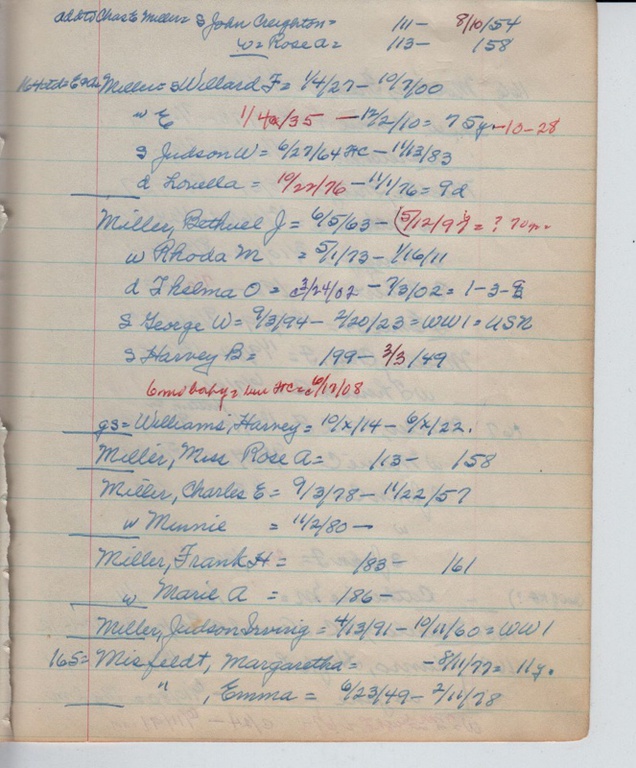 add to Chas E Miller = S John Creighton = /11 - 8/10/54
w = Rose A = /13 - /58
Miller = S Willard F = 1/4/27 - 10/7/00
w E 1/4/35 - 12/2/10 = 75 yr - 10 - 28
S Judson W = 6/27/64 HC - 11/13/83
d Louella = 10/22/76 - 11/1/76 = 9d
Miller, Bethuel J = 6/5/63 - (5/12/9 = ? 70 yr.
w Rhoda M = 5/1/73 - 1/16/11
d Thelma O = 3/24/02 - 7/3/02 = 1-3-9
S George W = 9/3/94 - 2/20/23 = WW1 = USN
S Harvey B = /99 - 3/3/49
6 mo baby = bur HC = 6/17/08
gs = Williams, Harvey = 10/x/14 - 6/x/22.
Miller, Miss Rose A = /13 - /58
Miller, Charles E = 9/3/78 - 11/22/57
w Minnie = 11/2/80 -
Miller, Frank H = /83 - /61
w Marie A = /86 -
Miller, Judson Irving = 4/13/91 - 10/11/60 = WW1
165 = Misfeldt, Margaretha = - 8/11/77 = 11y.
" , Emma = 6/23/49 - 2/11/78